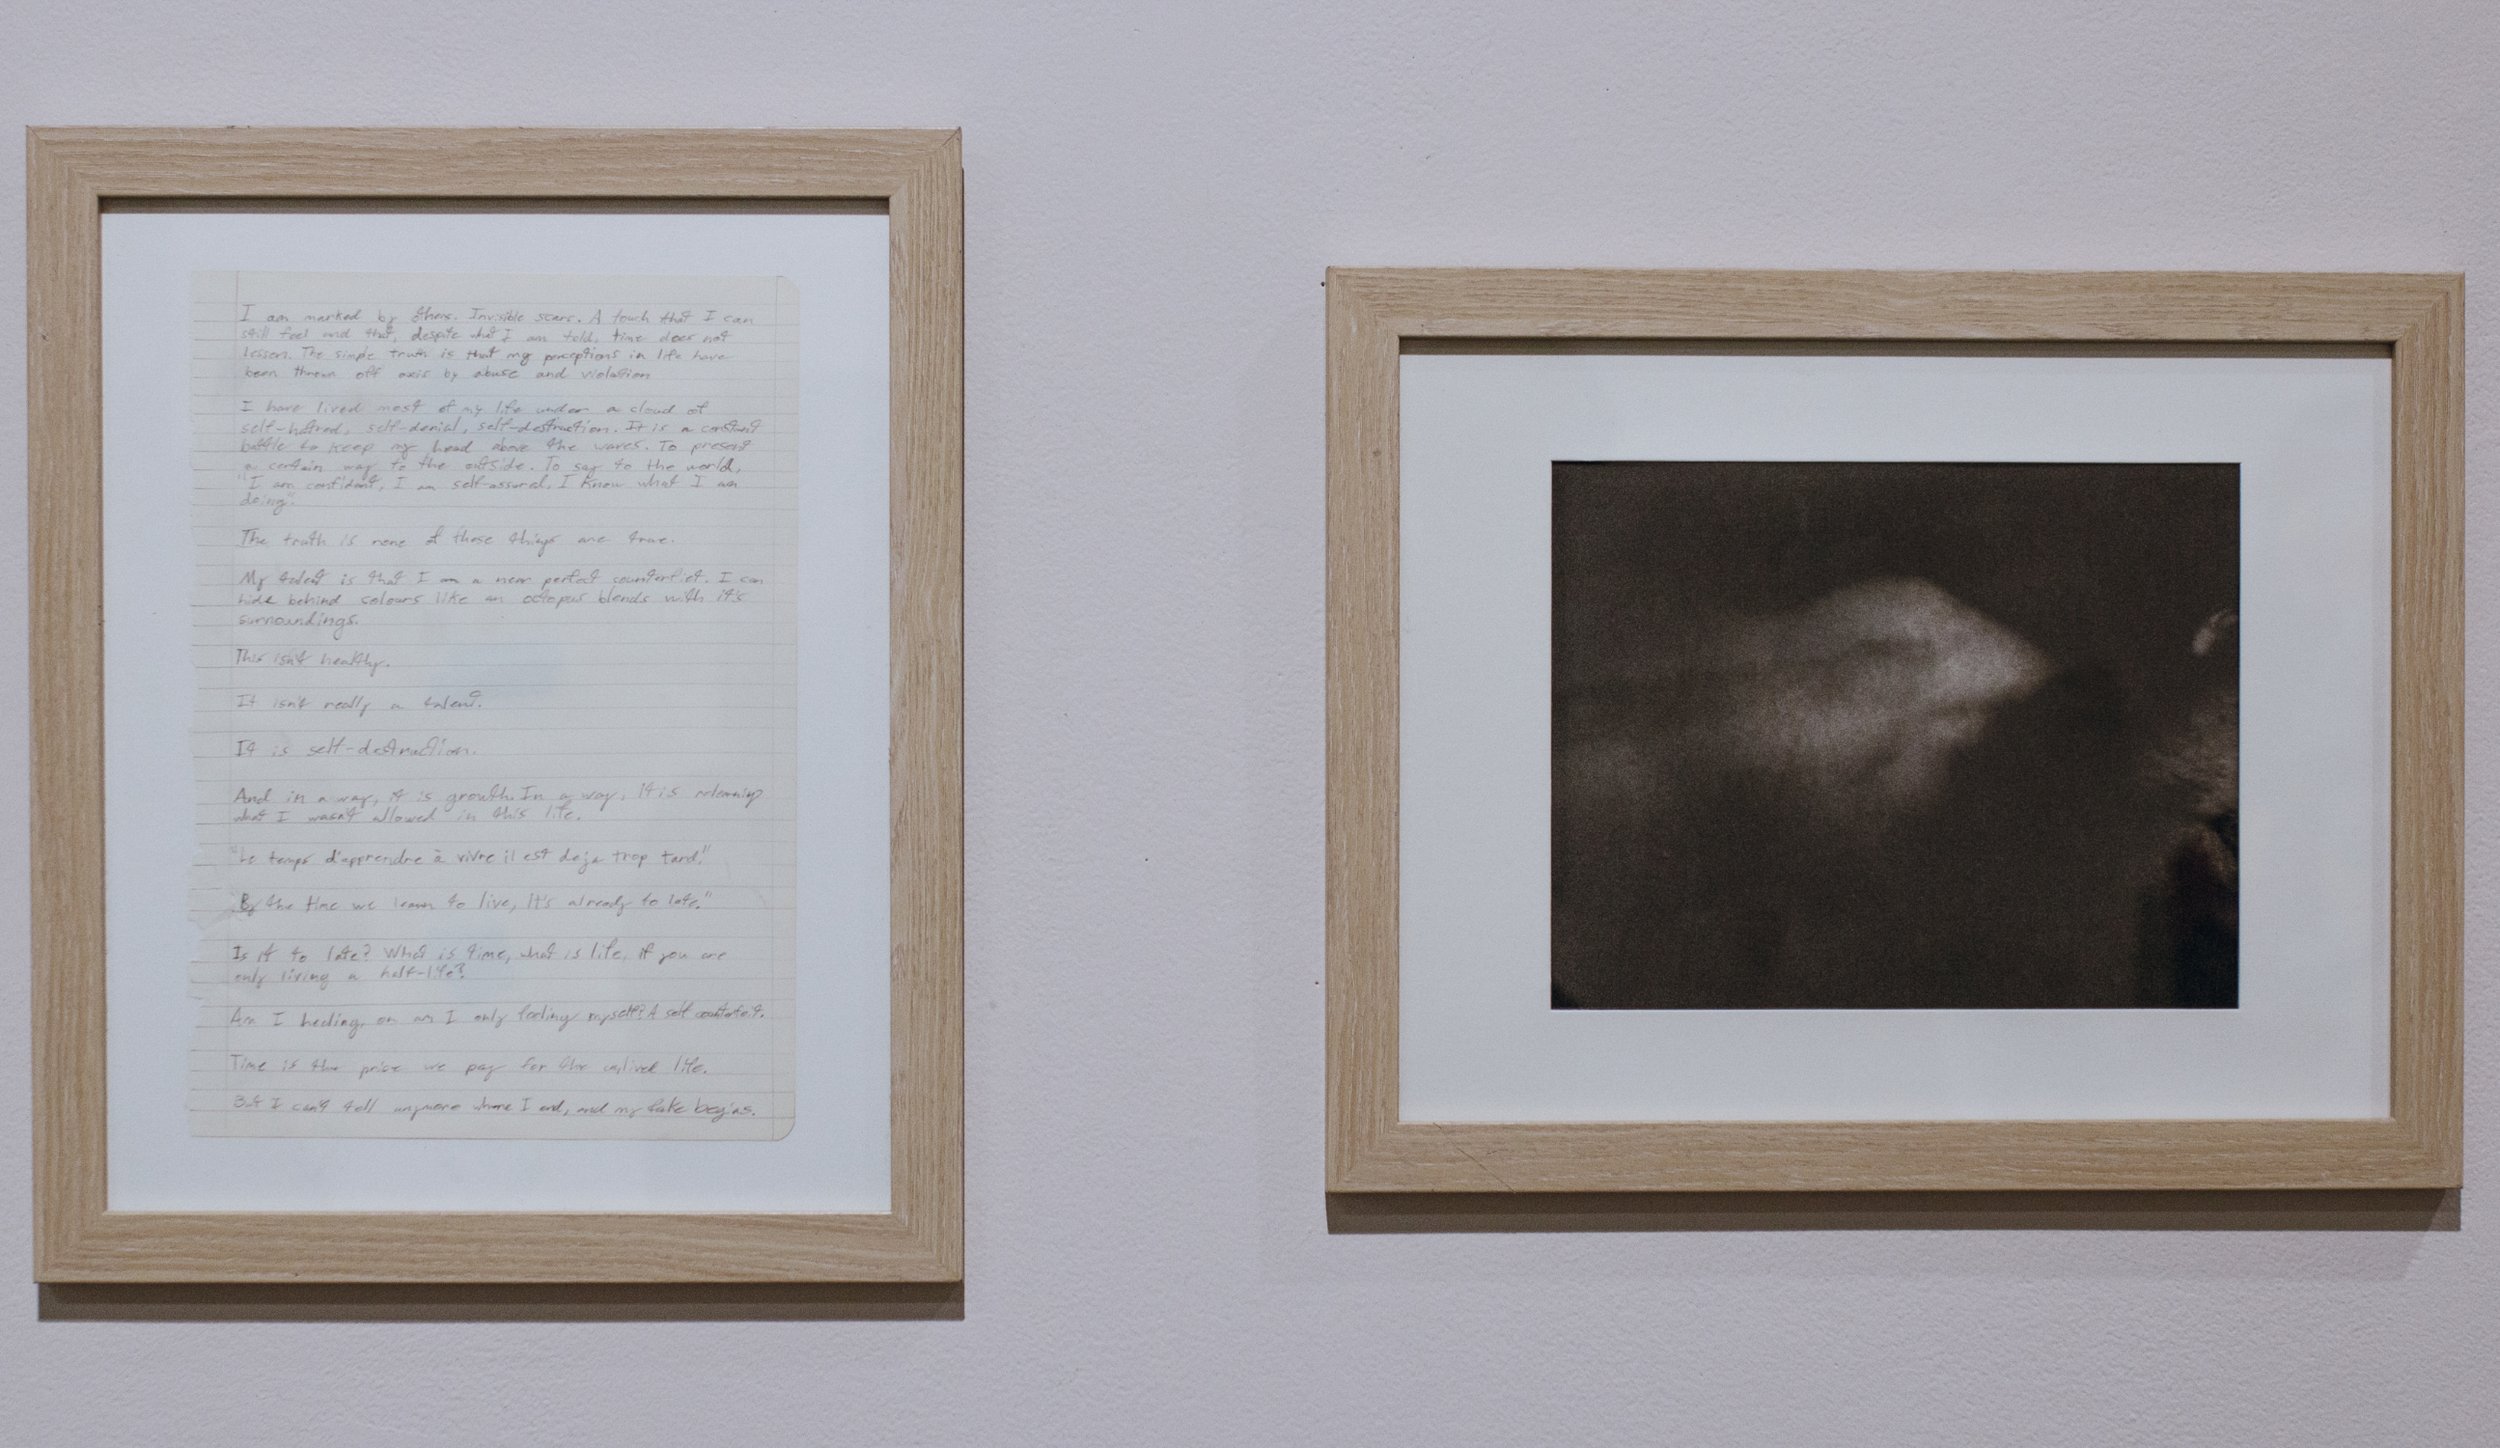 I am marked by others. Invisible scars. A touch that I can
still feel and that, despite what I am told, time does not
lessen. The simple truth is that my perceptions in life have
been thrown off axis by abuse and violation
I have lived most of my life under a cloud of
self-hatred, self-denial, self-destruction. It is a constant
battle to keep my head above the waves. To present
a certain way to the outside. To say to the world,
"I am confident, I am self-assured, I know what I am
doing".
The truth is none of those things are true.
My talent is that I am a near perfect counterfiet. I can
hide behind colours like an octopus blends with it's
surroundings.
This isn't healthy.
It isn't really a talent.
It is self-destruction.
And in a way, it is growth. In a way, it is relearning
what I wasn't allowed in this life.
"Le temps d'apprendre à vivre il est deja trop tard."
"By the time we learn to live, It's already to late."
Is it to late? What is time, what is life, if you are
only living a half-life?
Am I healing, or am I only fooling myself? A self counterfeit.
Time is the price we pay for the unlived life.
But I can't tell anymore where I end, and my fake begins.